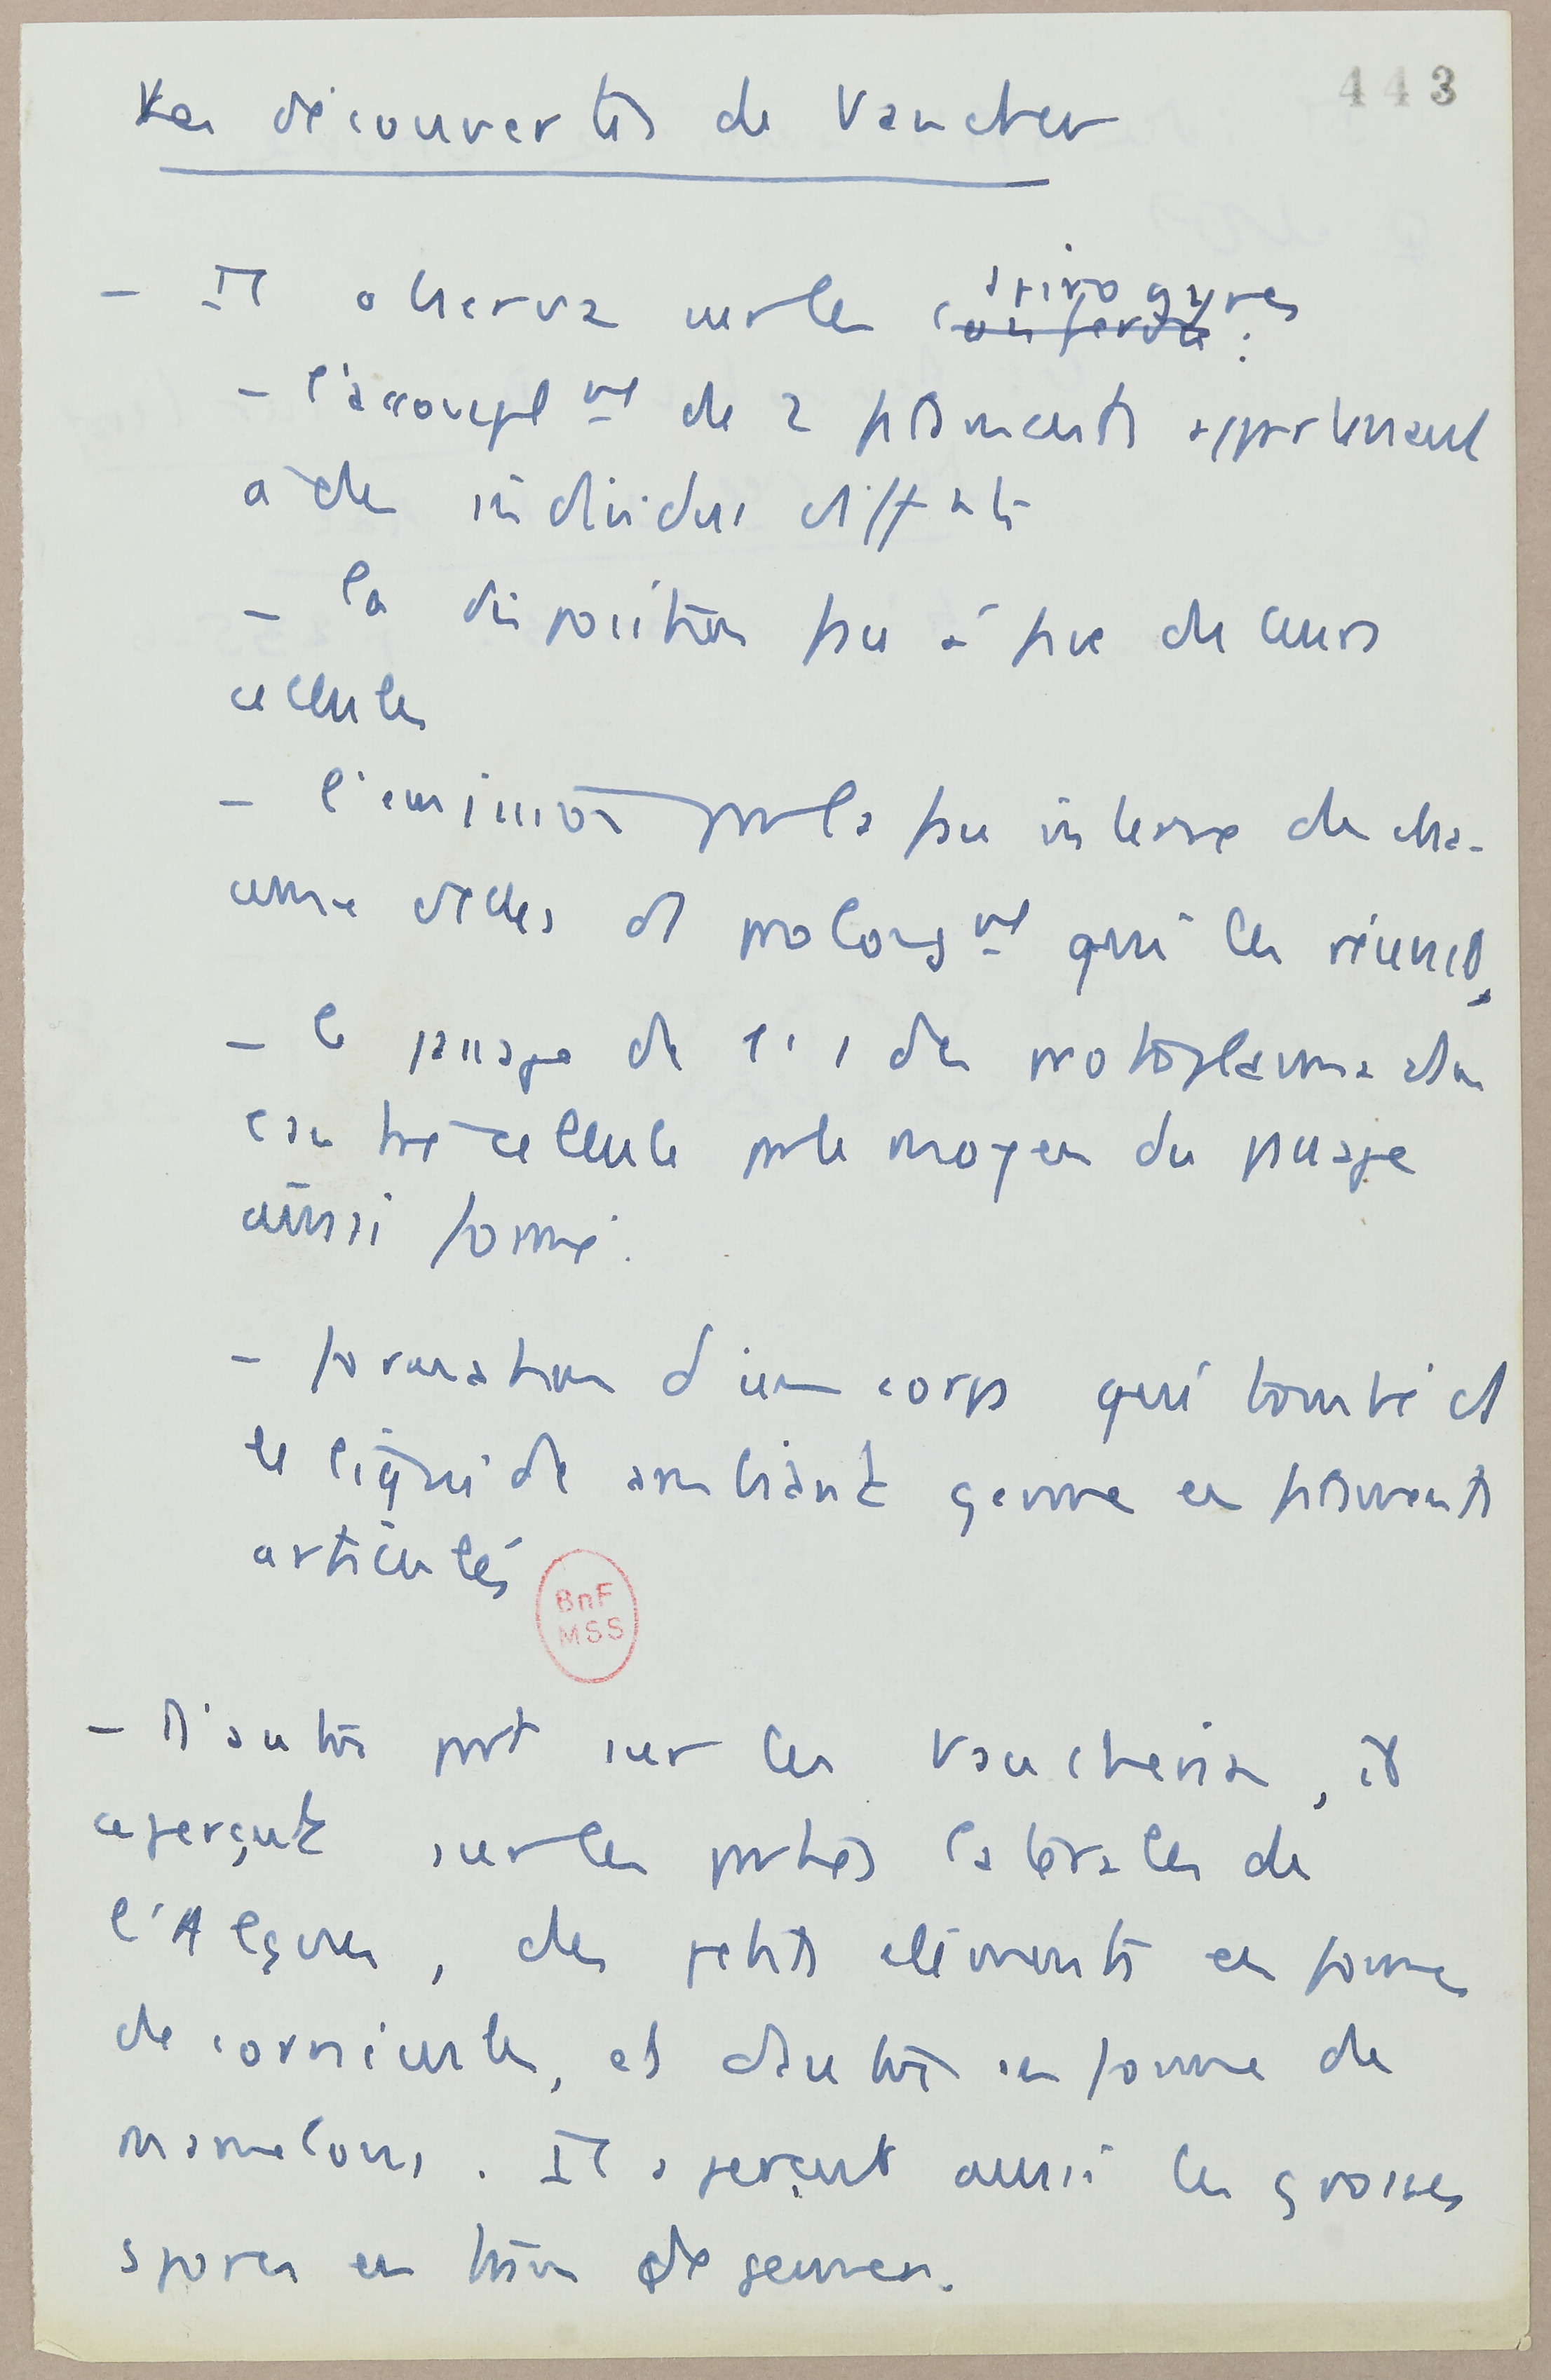 443
Les découvertes de Vaucher
- Il observa sur les spirogyres
conferves :
- l'accouplmt de 2 filaments appartenant
à des individus diffts
- la disposition face à face de leurs
cellules
- l'émission par la face interne de cha-
cune d'elles d' prolongmt qui les réunit,
- le passage de l' 1 des protoplasma ds
l'autre cellule par le moyen du passage
ainsi formé.
- formation d'un corps qui tombé ds
le liquide ambiant germe en filaments
articulés
BnF
MSS
- D'autre part sur les Vaucheria, il
aperçut sur les parties latérales de
l'Algues, des petits éléments en forme
de cornicules, et d'autres en forme de
mamelons. Il aperçut aussi les grosses
spores en train de germer.